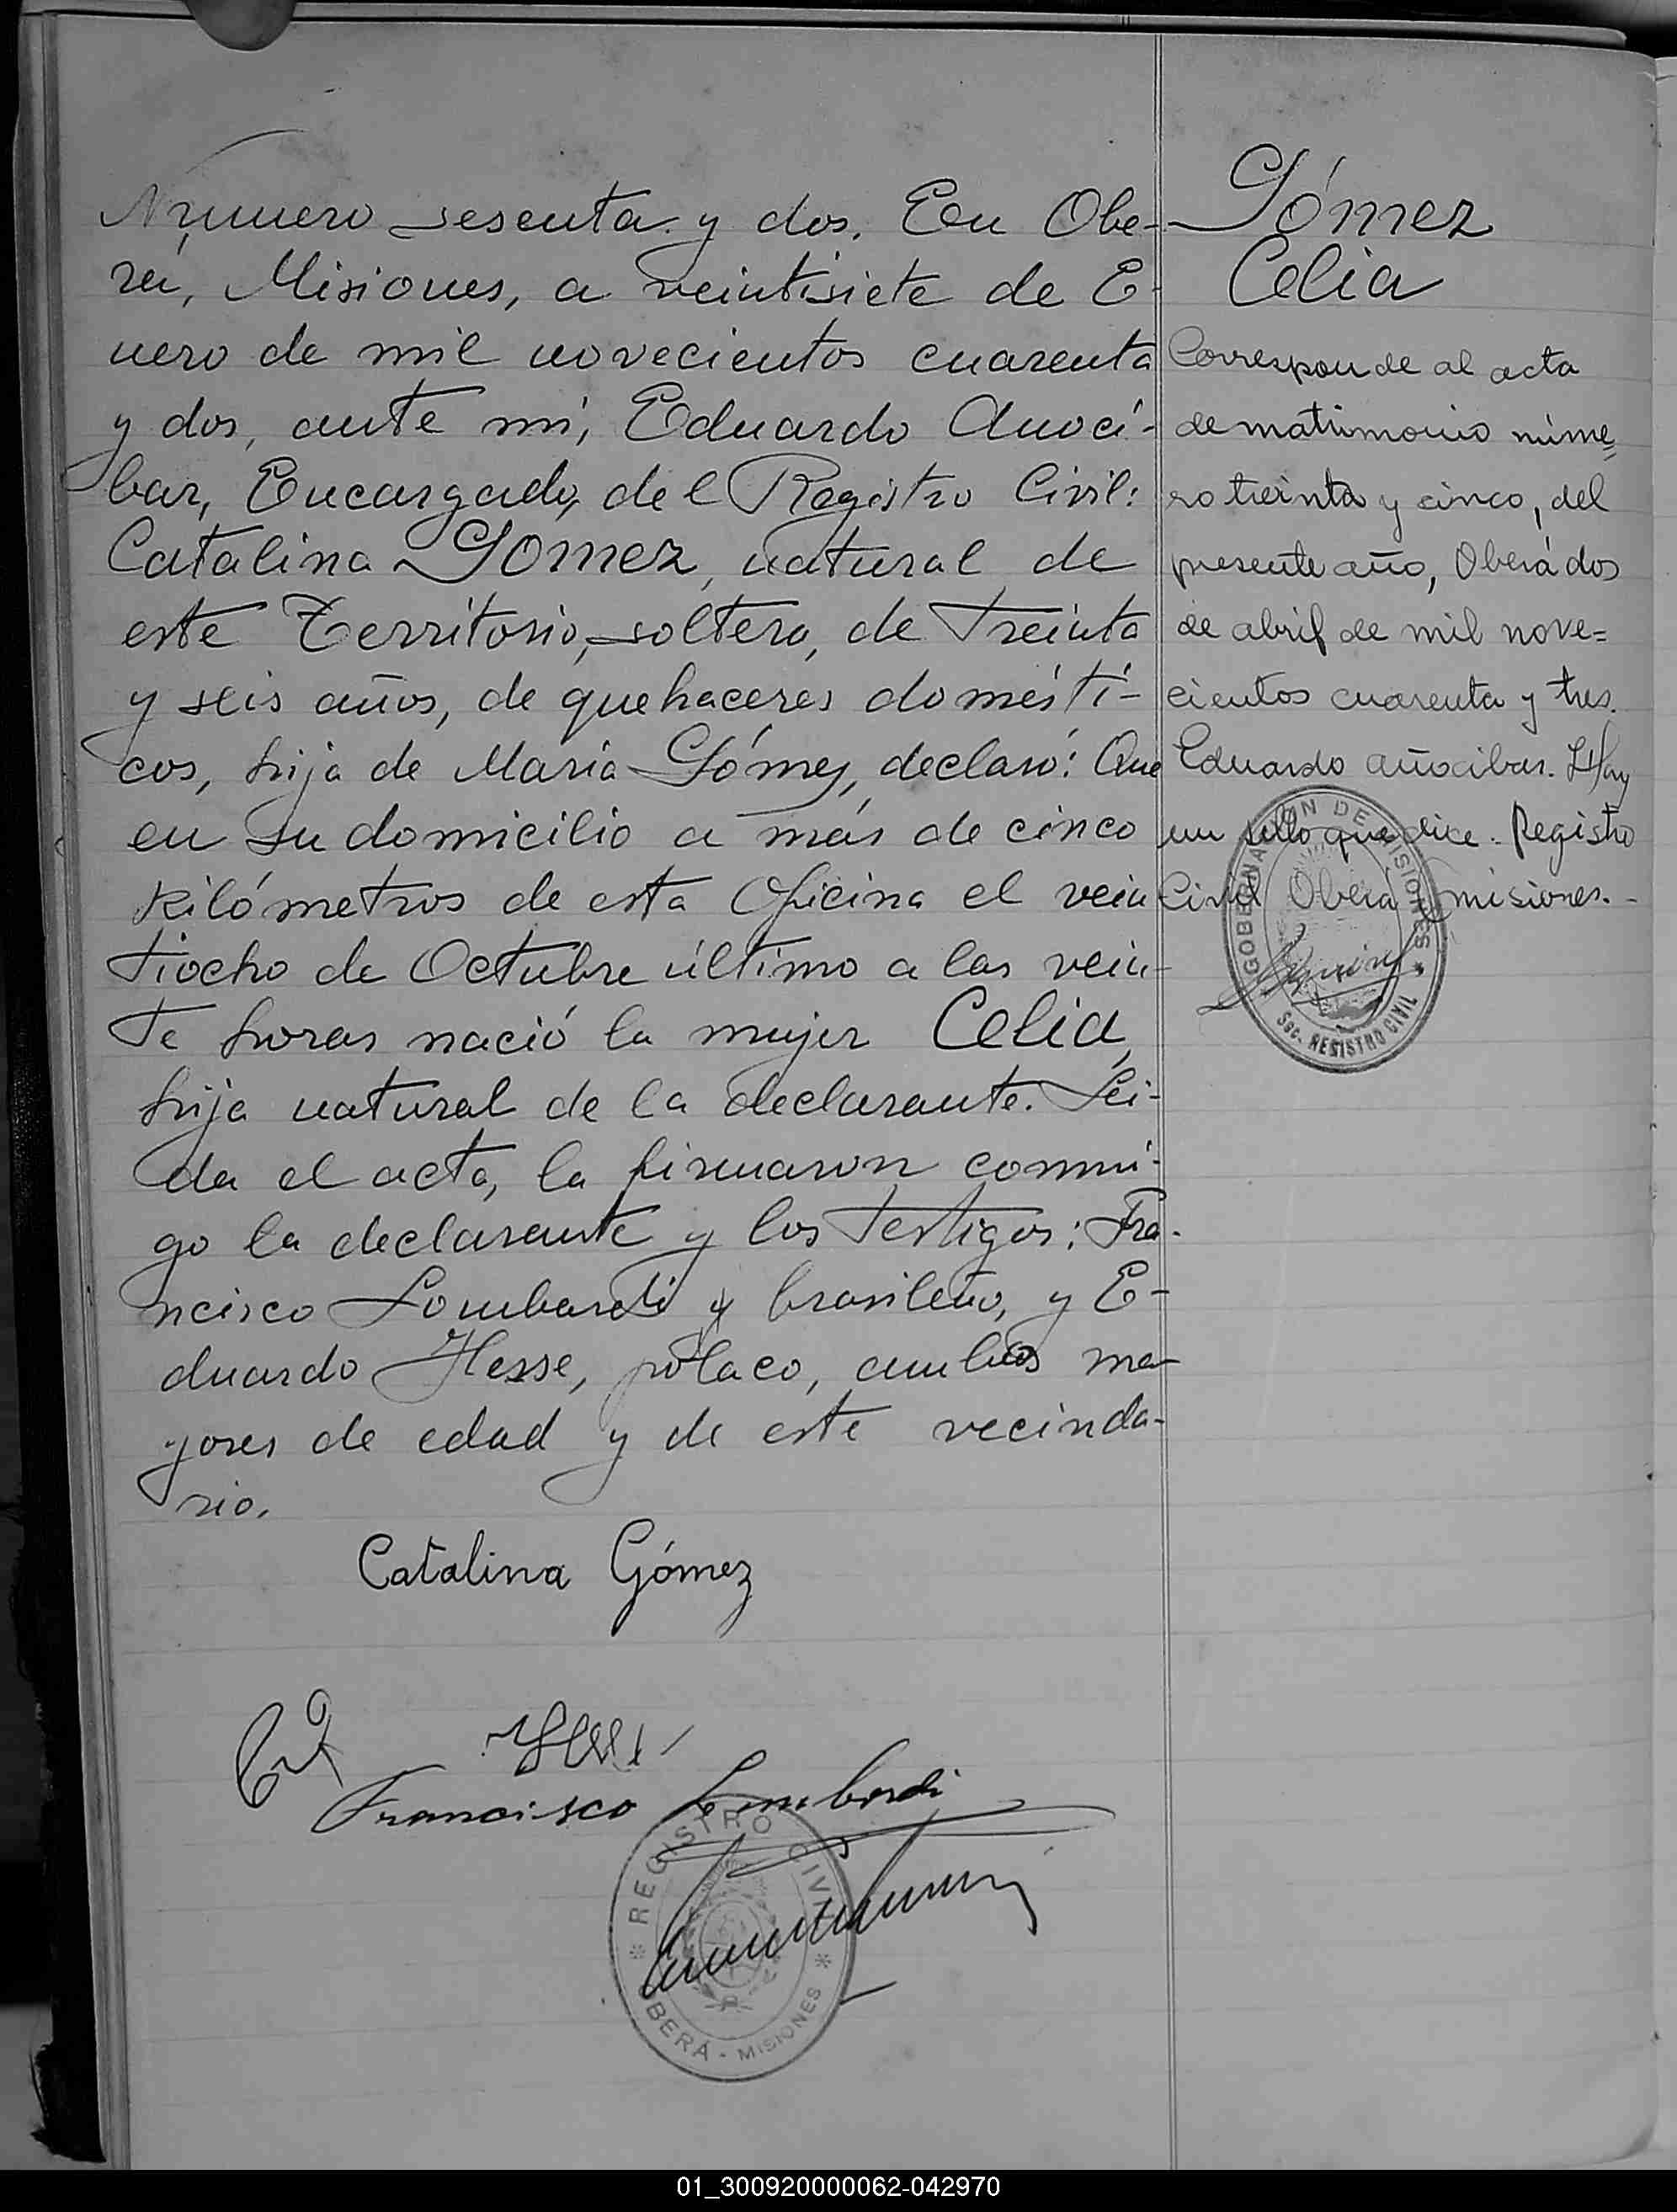 Número sesenta y dos. En Obe-
rá, Misiones, a veintisiete de E-
nero de mil novecientos cuarenta
y dos, ante mí, Eduardo Anocí-
bar, Encargado del Registro Civil:
Catalina GOMEZ, natural de
este Territorio, soltera, de treinta
y seis años, de quehaceres domésti-
cos, hija de María Gómez, declaró: Que
en su domicilio a más de cinco
kilómetros de esta Oficina el vein
tiocho de Octubre último a las vein-
te horas nació la mujer Celia,
hija natural de la declarante. Leí-
da el acta, la firmaron conmi-
go la declarante y los testigos: Fra-
ncisco Lombardi y brasileño, y E-
duardo Hesse, polaco, ambos ma-
yores de edad y de este vecinda-
rio.
Catalina Gómez
Hesse
Francisco Lombardi
REGISTRO CIVIL
OBERÁ - MISIONES
Gómez
Celia
Corresponde al acta
de matrimonio núme=
ro treinta y cinco, del
presente año, Oberá dos
de abril de mil nove=
cientos cuarenta y tres.
Eduardo Añocibar. Hay
un sello que dice: Registro
Civil Oberá misiones.-
GOBERNACIÓN DE MISIONES
Sec. REGISTRO CIVIL
01_300920000062-042970